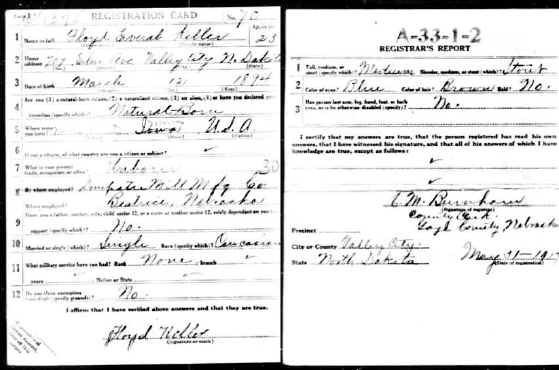 REGISTRATION CARD
1 Name in full Floyd Everet Keller 23
2 Home address Valley City N. Dakota
3 Date of birth March 12 1894
4 Are you (1) a natural-born citizen, (2) a naturalized citizen, (3) an alien, (4) or have you declared your intention (specify which)? Natural Born
5 Where were you born? Iowa U.S.A
6 If not a citizen, of what country are you a citizen or subject?
7 What is your present trade, occupation, or office? Laborer 30
8 By whom employed? Dempster Mill Mfg Co
Where employed? Beatrice, Nebraska
9 Have you a father, mother, wife, child under 12, or a sister or brother under 12, solely dependent on you for support (specify which)? No.
10 Married or single (which)? Single Race (specify which)? Caucasian
11 What military service have you had? Rank None branch
years Nation or State
12 Do you claim exemption from draft (specify grounds)? No.
I affirm that I have verified above answers and that they are true.
Floyd Keller
(Signature or mark)
A-33-1-2
REGISTRAR'S REPORT
1 Tall, medium, or short (specify which)? Medium Slender, medium, or stout (which)? Stout
2 Color of eyes? Blue Color of hair? Brown Bald? No.
3 Has person lost arm, leg, hand, foot, or both eyes, or is he otherwise disabled (specify)? No.
I certify that my answers are true, that the person registered has read his own answers, that I have witnessed his signature, and that all of his answers of which I have knowledge are true, except as follows:
E. M. Burnham
(Signature of registrar)
County Clerk
Precinct Gage County, Nebraska
City or County Valley City.
State North Dakota May 31-1917
(Date of registration)